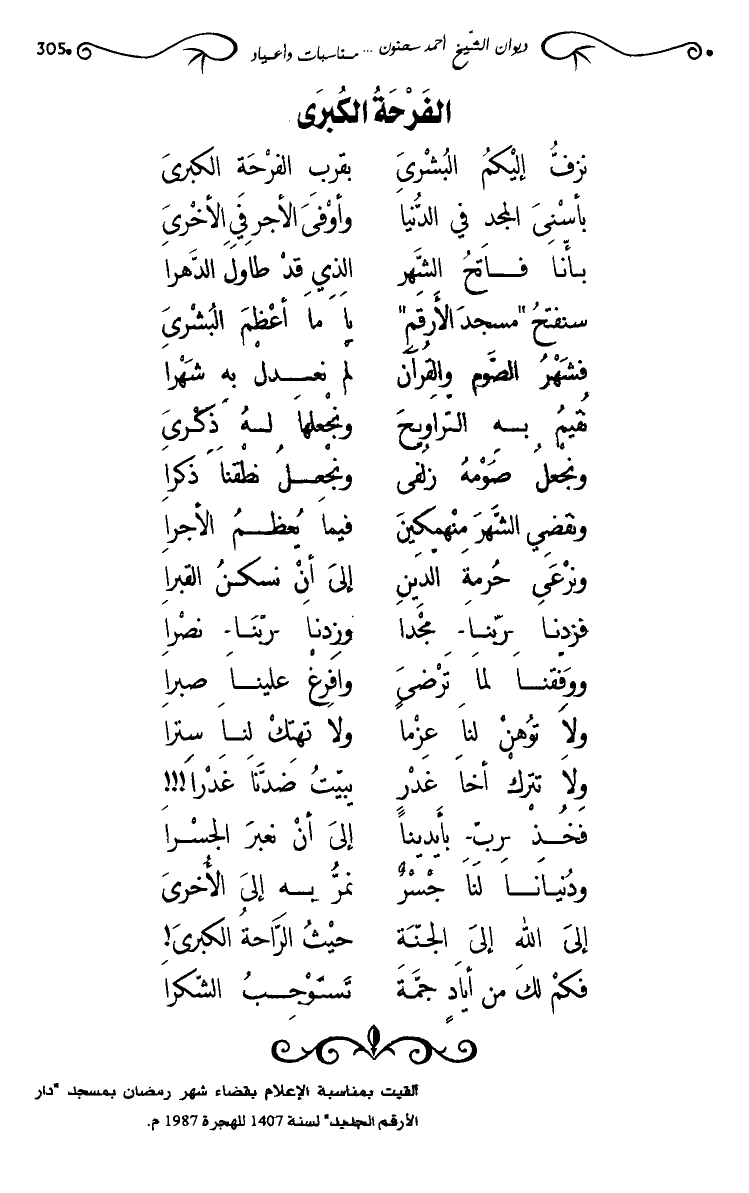 ديوان الشّيخ أحمد سحنون ... مناسبات وأعياد 305
الفَرْحَةُ الكُبرَى
نزفُّ إليْكمُ البُشْرىَ بقرب الفرْحَة الكبرىَ
بأسْنىَ المجد في الدُّنيا وأوْفىَ الأجر فيِ الأخْرىَ
بأنّا فـاتحُ الشَّهر الذي قدْ طاول الدَّهرا
سنفتحُ "مسجدَ الأرقم" يا ما أعْظمَ البُشْرىَ
فشَهْرُ الصَّوم والقرآن لم نعـدل به شَهْرا
نُقيمُ بـه التراويحَ ونجْعلها لـهُ ذكْـرىَ
ونجْعلُ صَوْمهُ زلفى ونجْعـلُ نطْقنا ذكرا
ونقضي الشّهرَ منْهمكينَ فيما يُعظـمُ الأجرا
ونرْعَى حُرمة الدين إلىَ أنْ نسكـنُ القبرا
فزدنـا -ربّنـا- مجْدا وزدنا -ربّنَـا- نصْرا
ووفقنـا لما ترْضىَ وافرغْ علينـا صبرا
ولا تُوهنْ لنا عزْماً ولا تهتكْ لنـا سترا
ولا تتركْ أخا غدْرٍ يبيّتُ ضدّنَا غدْرا!!!
فخُـذْ -ربّ- بأيدينـاً إلىَ أنْ نعبرَ الجسْـرا
ودُنيانـا لنا جْسْرٌ نمرُّ بـه إلىَ الأُخرىَ
إلىَ الله إلىَ الجنّـة حيْثُ الرَّاحةُ الكبرىَ!
فكمْ لكَ من أيادٍ جمَّةَ تَستـوْجـبُ الشّكرا
ألقيت بمناسبة الإعلام بقضاء شهر رمضان بمسجد "دار
الأرقم الجديد" لسنة 1407 للهجرة 1987 م.